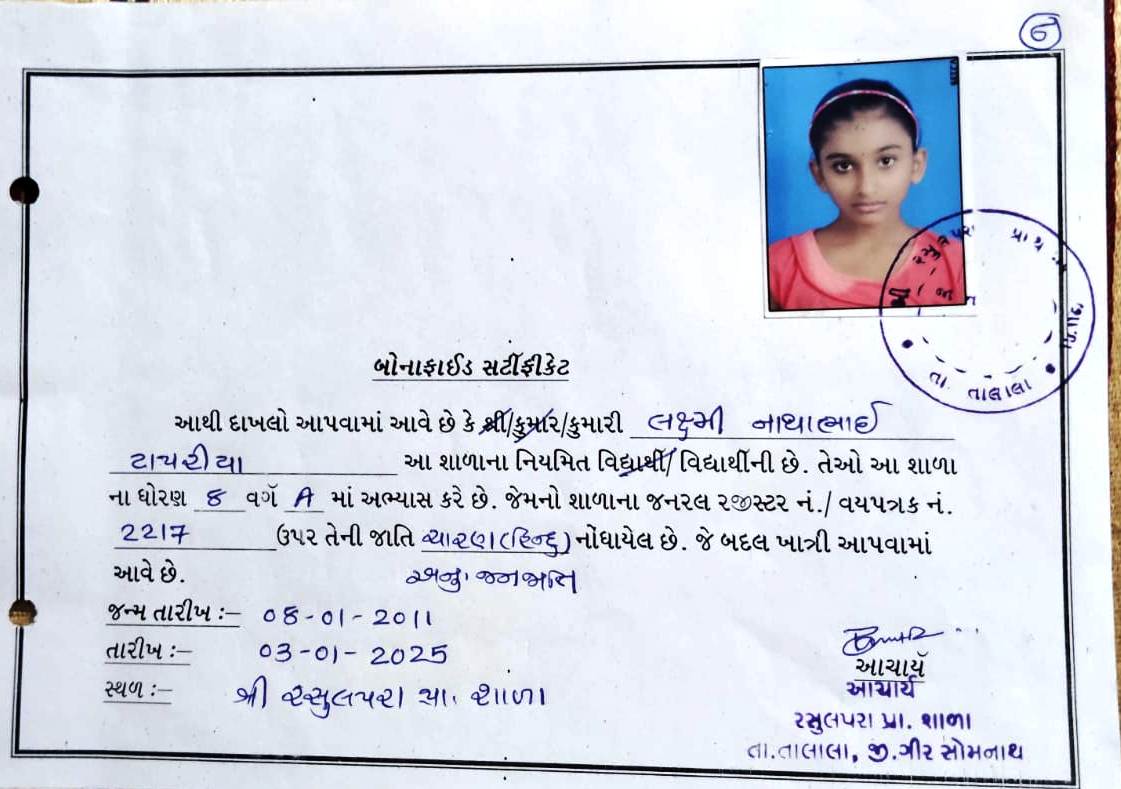 6
રસુલપરા પ્રાથ
તા. તાલાલા
બોનાફાઈડ સર્ટીફીકેટ
આથી દાખલો આપવામાં આવે છે કે શ્રી/કુમાર/કુમારી લક્ષ્મી નાથાભાઈ
ટાપરીયા આ શાળાના નિયમિત વિદ્યાર્થી/ વિદ્યાર્થીની છે. તેઓ આ શાળા
ના ધોરણ 8 વર્ગ A માં અભ્યાસ કરે છે. જેમનો શાળાના જનરલ રજીસ્ટર નં./ વયપત્રક નં.
2217 ઉપર તેની જાતિ ચારણ(હિન્દુ) નોંધાયેલ છે. જે બદલ ખાત્રી આપવામાં
આવે છે. અનુ. જનજાતિ
જન્મ તારીખ :- 08-01-2011
તારીખ :- 03-01-2025
સ્થળ :- શ્રી રસુલપરા પ્રા. શાળા
આચાર્ય
આચાર્ય
રસુલપરા પ્રા. શાળા
તા.તાલાલા, જી.ગીર સોમનાથ